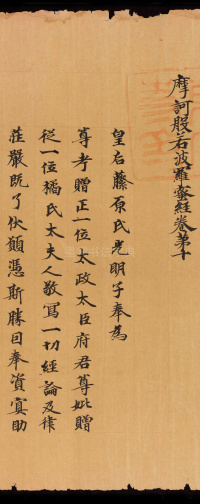 摩訶般若波羅蜜經卷第十
皇后藤原氏光明子奉為
尊考贈正一位太政太臣府君尊妣贈
從一位橘氏太夫人敬寫一切經論及律
莊嚴既了伏願憑斯勝因奉資冥助